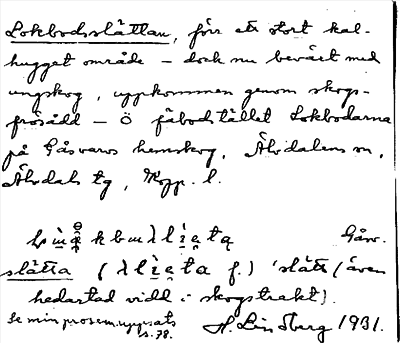 Lokbodsslättan, förr ett stort kal-
hugget område – dock nu beväxt med
ungskog, uppkommen genom skogs-
frösådd – Ö fäbodstället Lokbodarna
på Gåsvarvs hemskog, Älvdalens sn,
Älvdals tg, Kopp. l.
Gåsv.
slätta ( f.) 'slätt (även
hedartad vidd i skogstrakt).
Se min prosem.uppsats
s. 78.
H. Lindberg 1931.